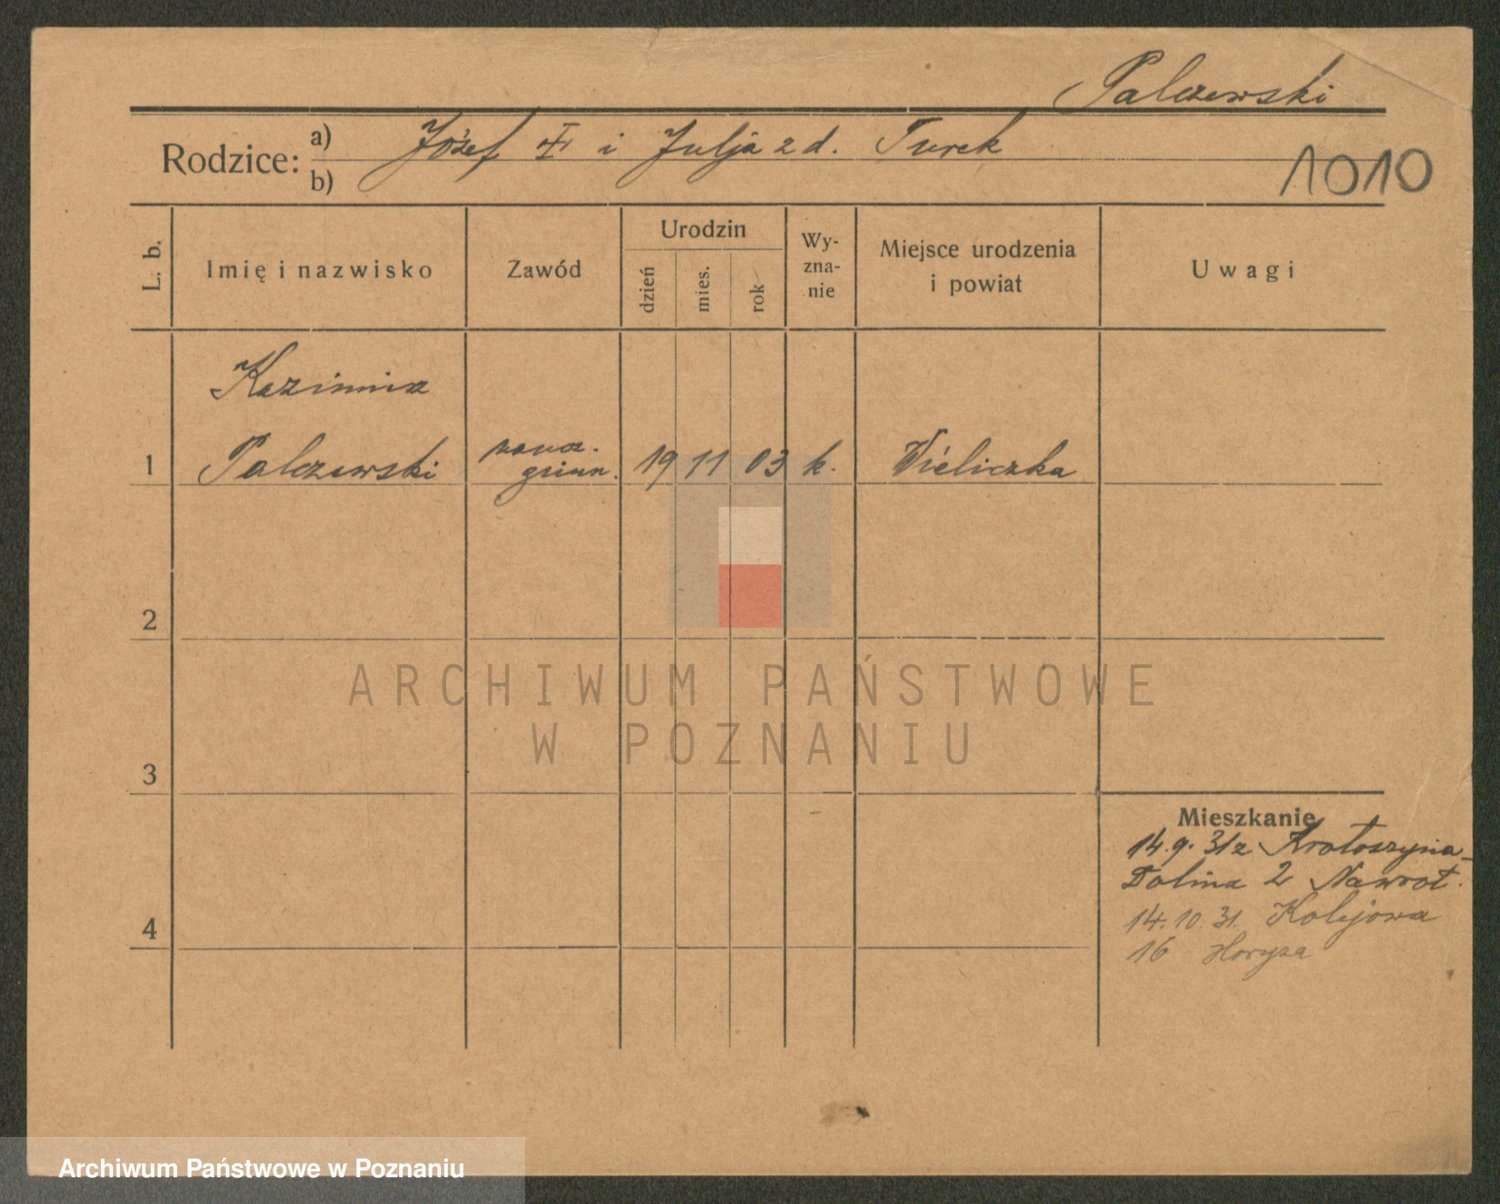 Palczewski
Rodzice: a) Józef i Julja z d. Turek
b)
1010
L. b.
Imię i nazwisko
Zawód
Urodzin
dzień
mies.
rok
Wy-
zna-
nie
Miejsce urodzenia
i powiat
Uwagi
Kazimierz
1 Palczewski naucz. gimn. 19 11 03 k. Wieliczka
2
ARCHIWUM PAŃSTWOWE
W POZNANIU
3
Mieszkanie
14.9.31 z Krotoszyna-
Dolina 2 Nawrot.
4
14.10.31. Kolejowa
16
Archiwum Państwowe w Poznaniu